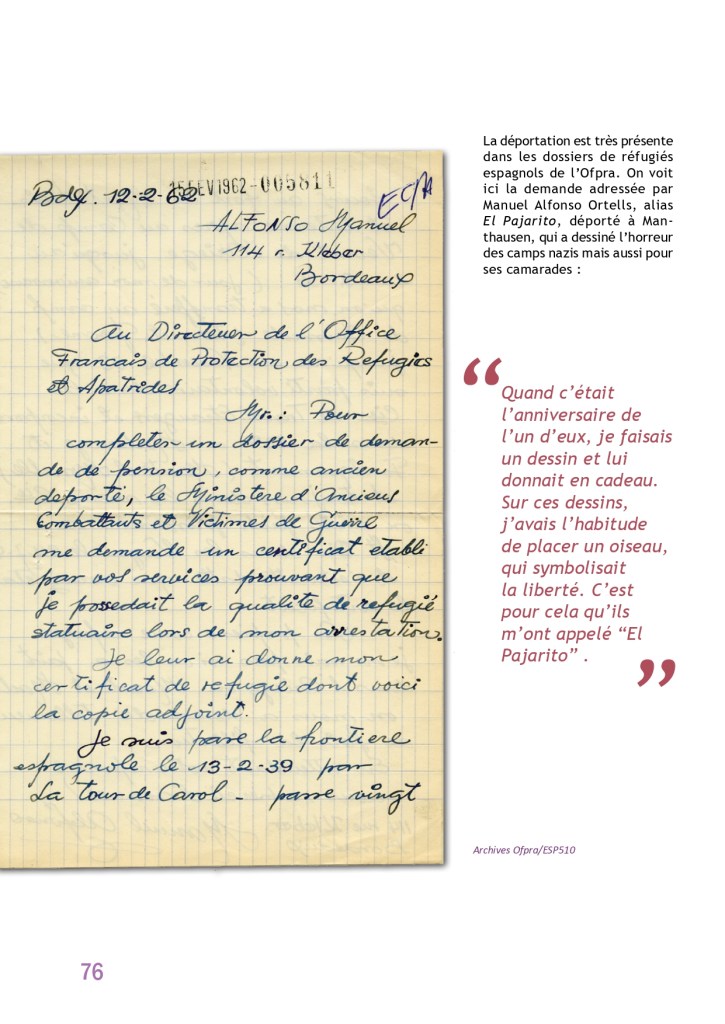 La déportation est très présente
dans les dossiers de réfugiés
espagnols de l'Ofpra. On voit
ici la demande adressée par
Manuel Alfonso Ortells, alias
El Pajarito, déporté à Man-
thausen, qui a dessiné l'horreur
des camps nazis mais aussi pour
ses camarades :
Bdx. 12-2-62
15 FEV 1962-005811
ALFONSO Manuel
114 r. Kleber
Bordeaux
Au Directeuer de l'Office
Francais de Protection des Refugies
et Apatrides
Mr.: Pour
completer un dossier de deman-
de de pension, comme ancien
deporté, le Ministere d'Anciens
Combattants et Victimes de Guerre
me demande un certificat etabli
par vos services prouvant que
je possedait la qualité de refugié
statuaire lors de mon arrestation.
Je leur ai donne mon
certificat de refugie dont voici
la copie adjoint.
Je suis pase la frontiere
espagnole le 13-2-39 par
La tour de Carol - passe vingt
“Quand c'était
l'anniversaire de
l'un d'eux, je faisais
un dessin et lui
donnait en cadeau.
Sur ces dessins,
j'avais l'habitude
de placer un oiseau,
qui symbolisait
la liberté. C'est
pour cela qu'ils
m'ont appelé “El
Pajarito” .”
Archives Ofpra/ESP510
76